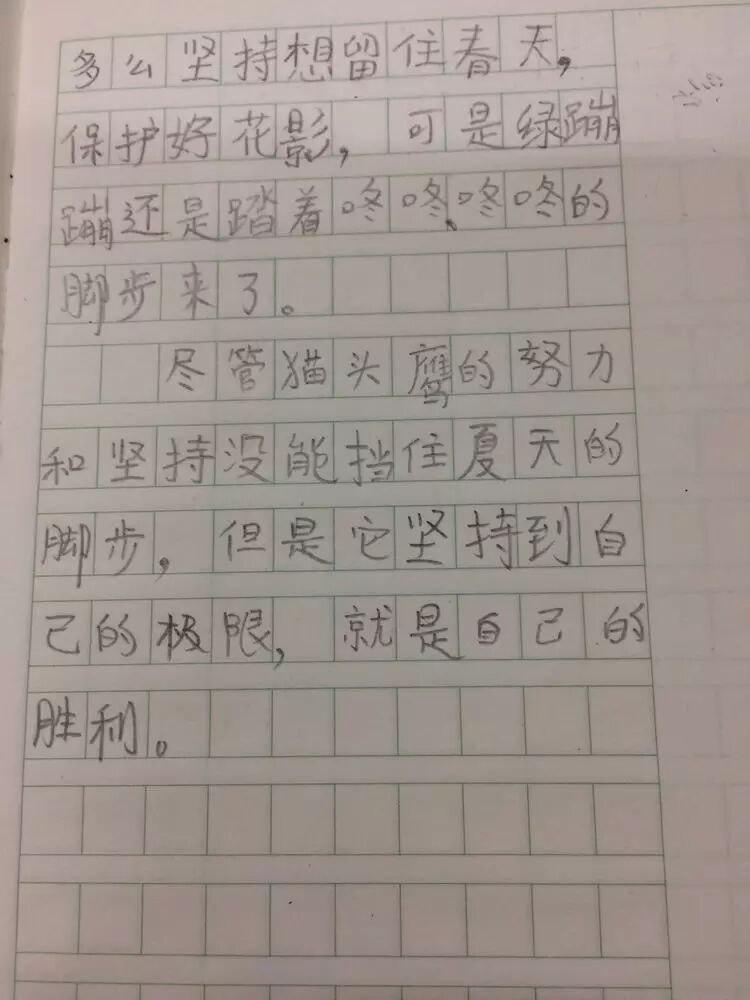 多么坚持想留住春天，
保护好花影，可是绿蹦
蹦还是踏着咚咚、咚咚的
脚步来了。
尽管猫头鹰的努力
和坚持没能挡住夏天的
脚步，但是它坚持到自
己的极限，就是自己的
胜利。